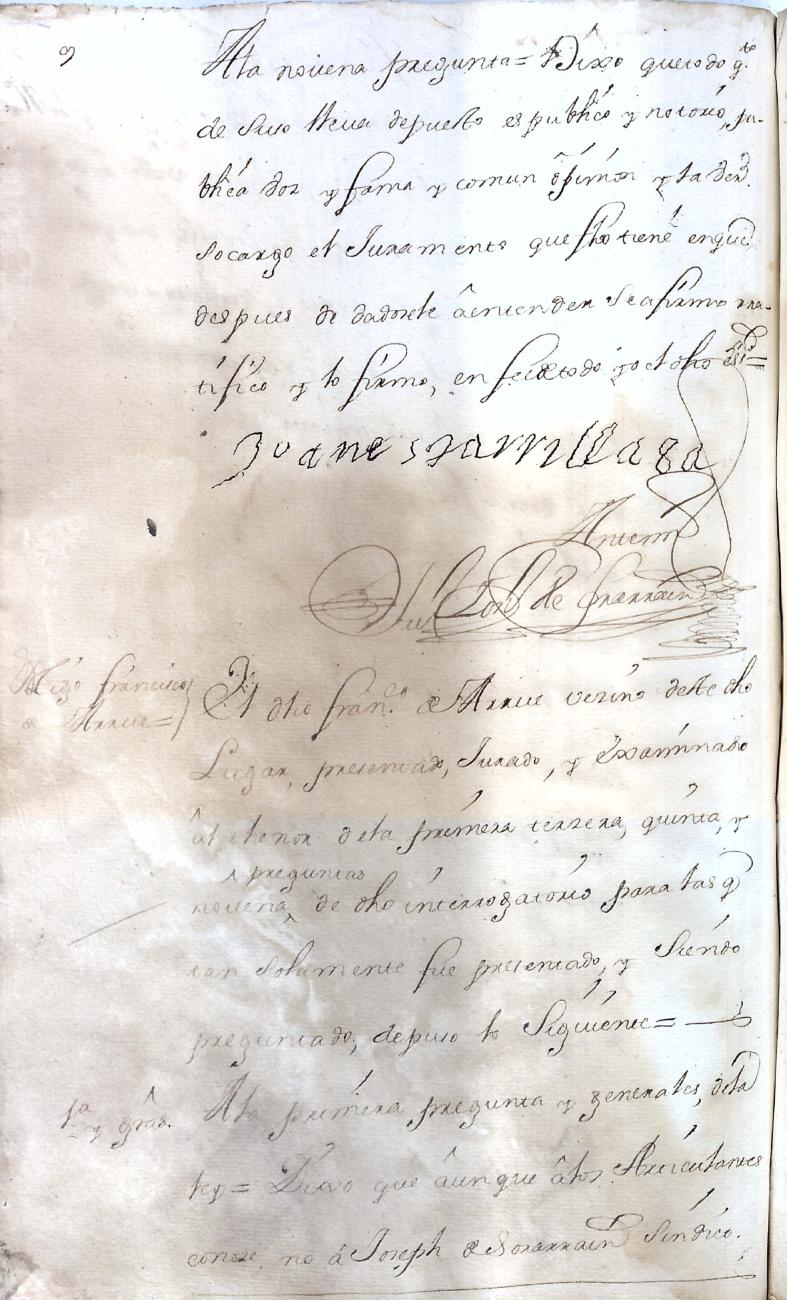 9
A la novena pregunta = Dixo que todo qto
de suso lleva depuesto es publico y notorio, pu-
blica voz y fama y comun opinion y la verd.
so cargo el Juramento que fho tiene en que
despues de dadosele à entender se afirmo rra-
tifico y lo firmo, en fee de todo yo el dho essno =
Juanes Yarrillaga
Antemi
de
Ttigo Francisco
de Arrue =
El dho Franco de Arrue vezino deste dho
Lugar, presentado, Jurado, y examinado
àl thenor dela primera terzera, quinta, y
preguntas
novena, de dho interrogatorio para las q
tan solamente fue presentado, y siendo
preguntado, depuso lo Siguiente =
1a y gras.
A la primera pregunta y generales, dela
ley = Dixo que àunque àlos Articulantes
conoze, no à Joseph de Sorarrain Sindico.